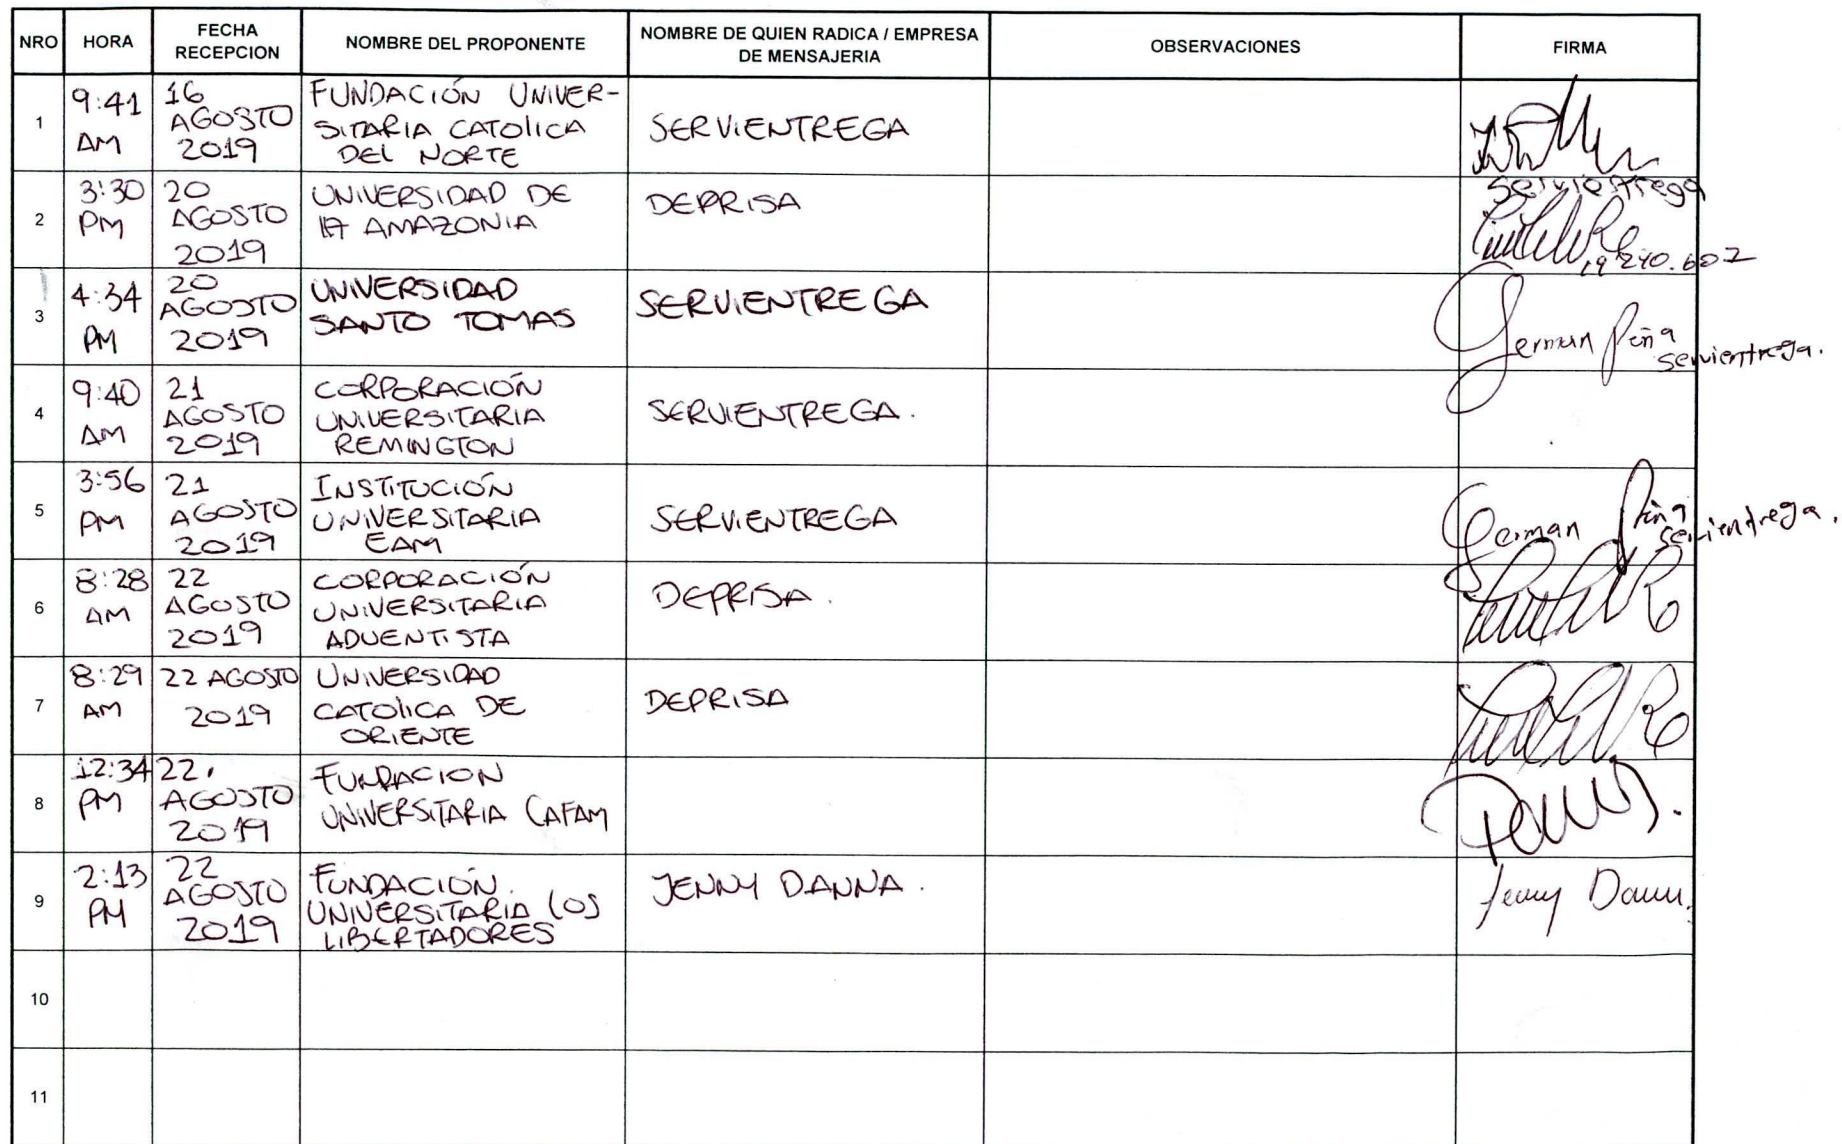 NRO HORA FECHA RECEPCION NOMBRE DEL PROPONENTE NOMBRE DE QUIEN RADICA / EMPRESA DE MENSAJERIA OBSERVACIONES FIRMA
1 9:41 AM 16 AGOSTO 2019 FUNDACIÓN UNIVER- SITARIA CATOLICA DEL NORTE SERVIENTREGA Servientrega
2 3:30 PM 20 AGOSTO 2019 UNIVERSIDAD DE LA AMAZONIA DEPRISA 19 240.602
3 4:34 PM 20 AGOSTO 2019 UNIVERSIDAD SANTO TOMAS SERVIENTREGA German Peña servientrega.
4 9:40 AM 21 AGOSTO 2019 CORPORACIÓN UNIVERSITARIA REMINGTON SERVIENTREGA.
5 3:56 PM 21 AGOSTO 2019 INSTITUCIÓN UNIVERSITARIA EAM SERVIENTREGA German Peña servientrega.
6 8:28 AM 22 AGOSTO 2019 CORPORACIÓN UNIVERSITARIA ADVENTISTA DEPRISA.
7 8:29 AM 22 AGOSTO 2019 UNIVERSIDAD CATOLICA DE ORIENTE DEPRISA
8 12:34 PM 22. AGOSTO 2019 FUNDACION UNIVERSITARIA CAFAM
9 2:13 PM 22 AGOSTO 2019 FUNDACIÓN. UNIVERSITARIA LOS LIBERTADORES JENNY DANNA. Jenny
10
11